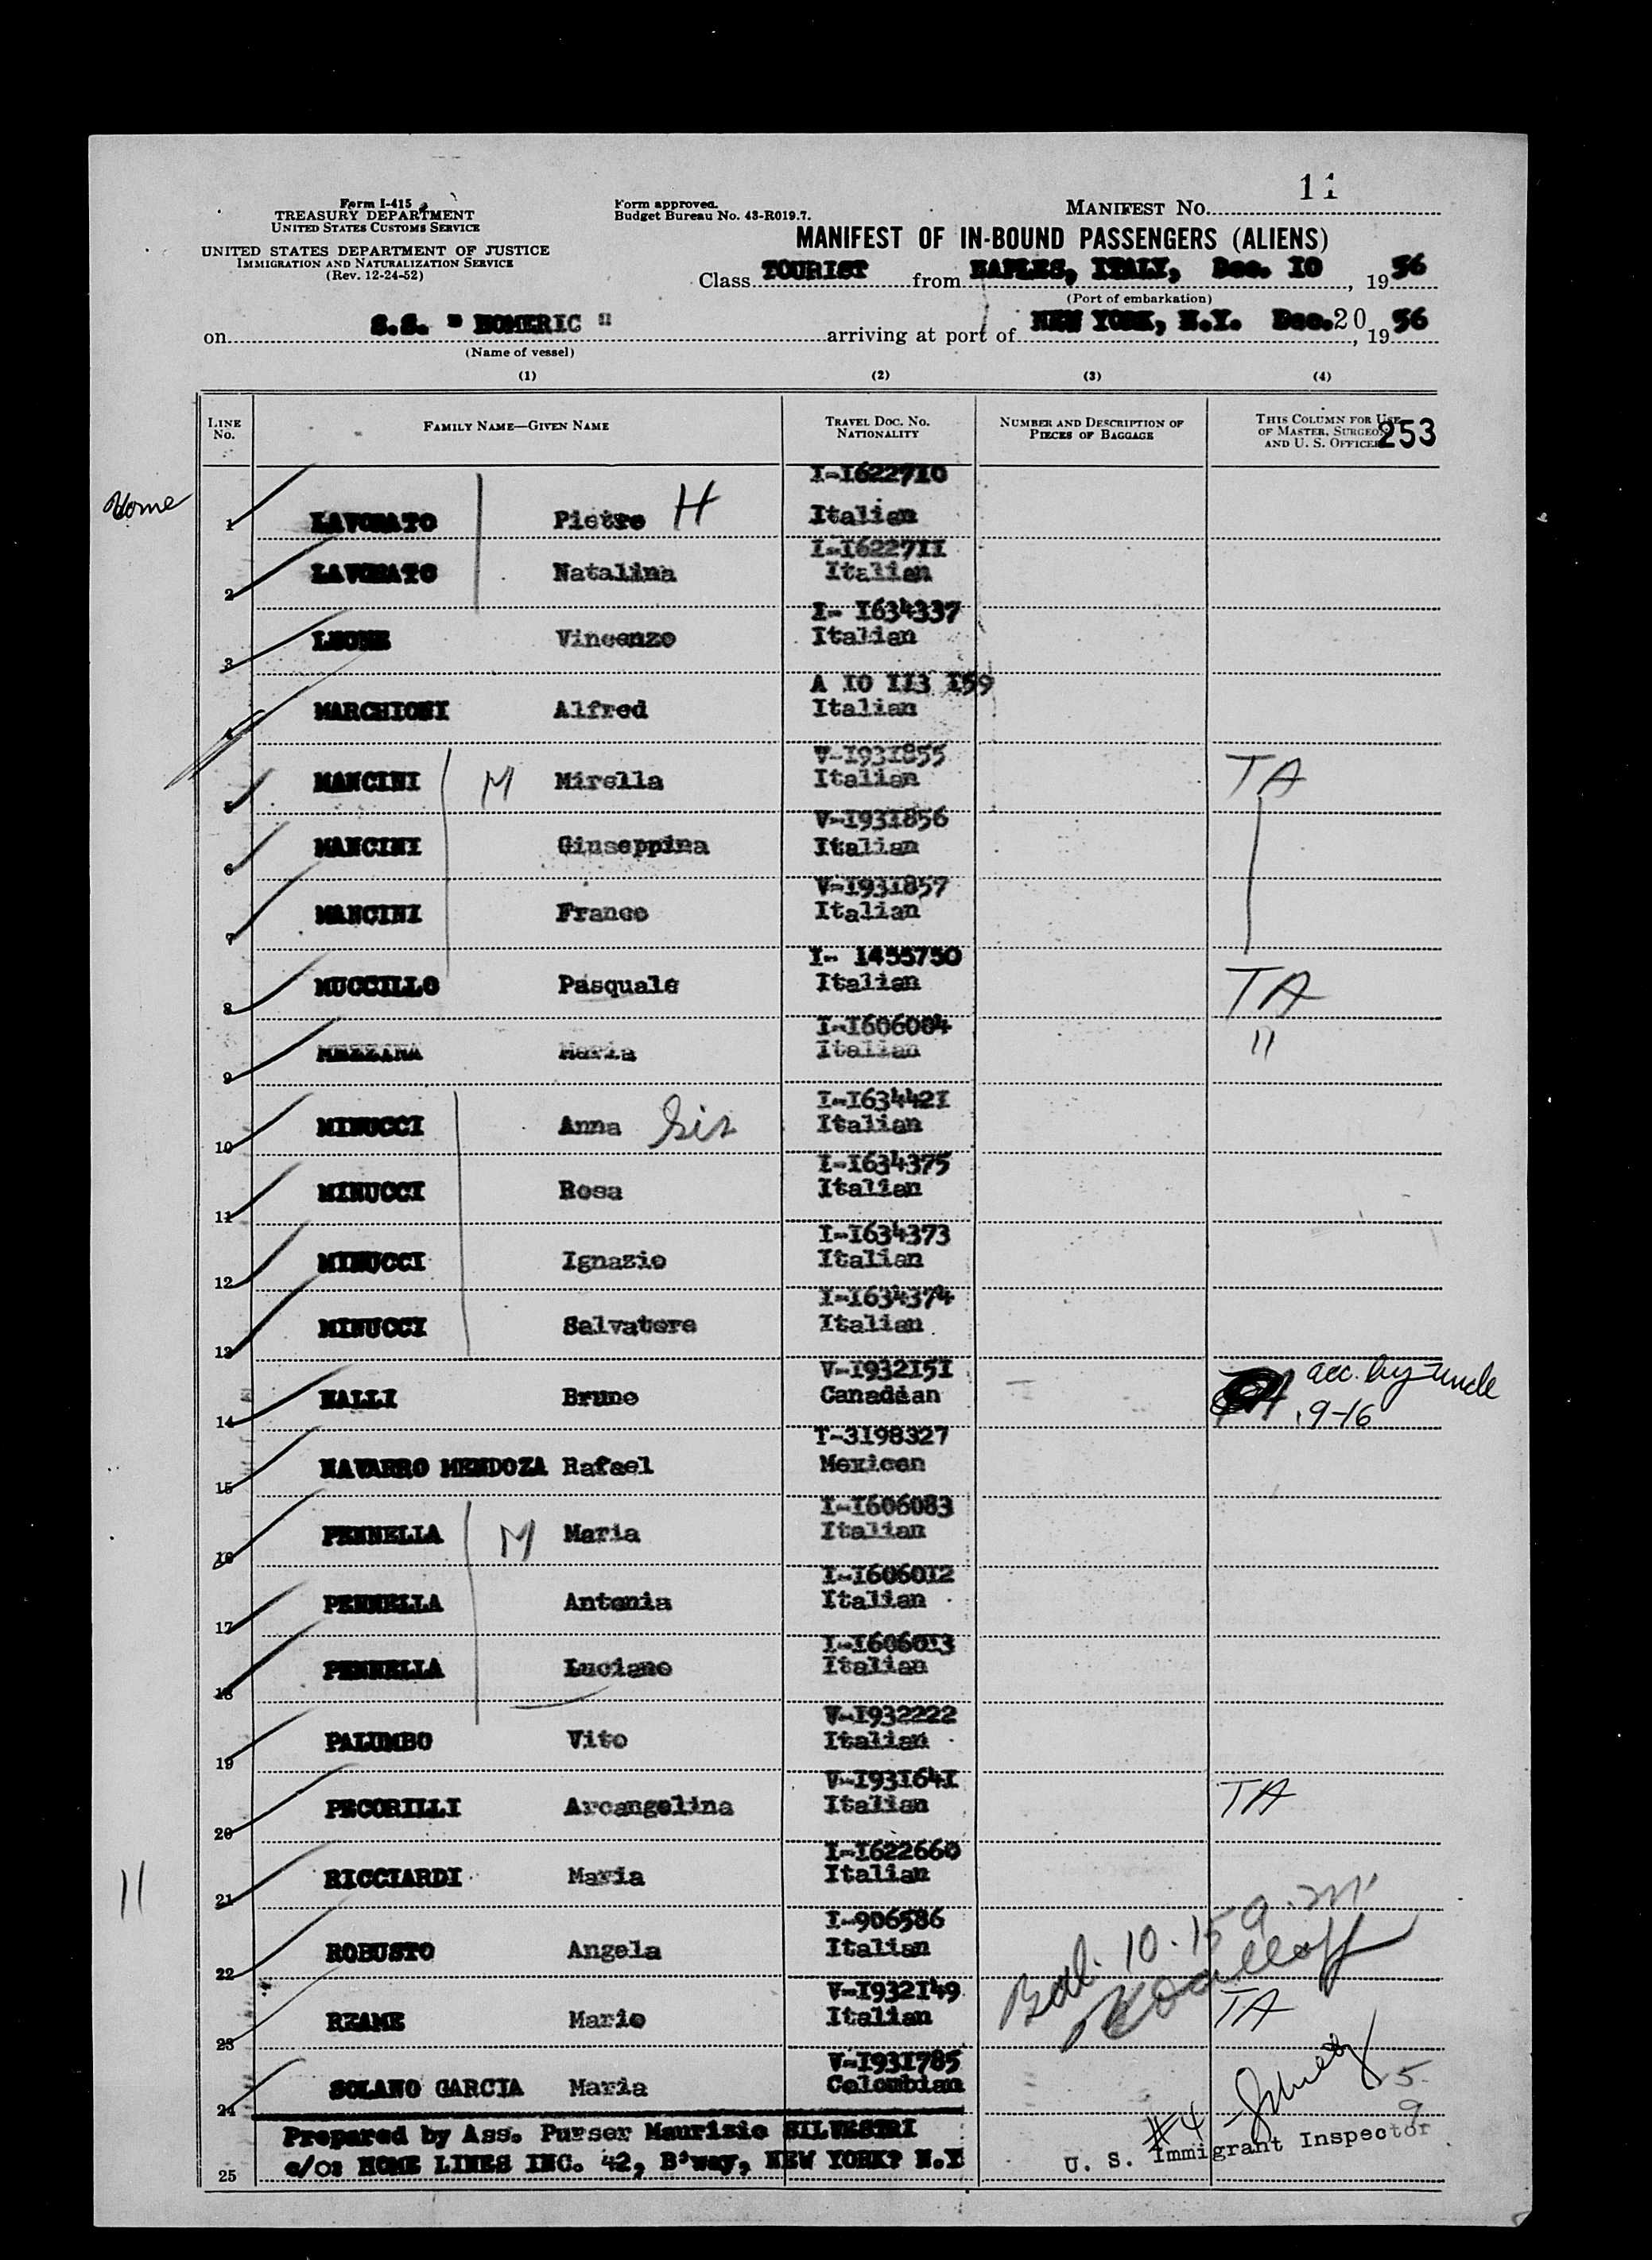 11
Form I-415
TREASURY DEPARTMENT
UNITED STATES CUSTOMS SERVICE
UNITED STATES DEPARTMENT OF JUSTICE
IMMIGRATION AND NATURALIZATION SERVICE
(Rev. 12-24-52)
Form approved.
Budget Bureau No. 43-R019.7.
MANIFEST NO.
MANIFEST OF IN-BOUND PASSENGERS (ALIENS)
Class TOURIST from NAPLES, ITALY, Dec. 10, 1956
(Port of embarkation)
on S.S. " HOMERIC " arriving at port of NEW YORK, N.Y. Dec. 20, 1956
(Name of vessel)
(1) (2) (3) (4)
LINE No. FAMILY NAME—GIVEN NAME TRAVEL DOC. NO. NATIONALITY NUMBER AND DESCRIPTION OF PIECES OF BAGGAGE THIS COLUMN FOR USE OF MASTER, SURGEON AND U. S. OFFICER 253
Home
I-1622710
1 LAVORATO Pietro H Italian
I-1622711
2 LAVORATO Natalina Italian
I- 1634337
3 LEONE Vincenzo Italian
A 10 113 159
4 MARCHIONI Alfred Italian
V-1931855
5 MANCINI M Mirella Italian TA
V-1931856
6 MANCINI Giuseppina Italian
V-1931857
7 MANCINI Franco Italian
I- 1455750
8 MUCCILLO Pasquale Italian TA
I-1606084
9 MEZZINA Maria Italian "
I-1634421
10 MINUCCI Anna Sis Italian
I-1634375
11 MINUCCI Rosa Italian
I-1634373
12 MINUCCI Ignazio Italian
I-1634374
13 MINUCCI Salvatore Italian
V-1932151 acc. by uncle
14 NALLI Bruno Canadian 9-16
T-3198327
15 NAVARRO MENDOZA Rafael Mexican
I-1606083
16 PENNELLA M Maria Italian
I-1606012
17 PENNELLA Antonia Italian
I-1606013
18 PENNELLA Luciano Italian
V-1932222
19 PALUMBO Vito Italian
V-1931641
20 PECORILLI Arcangelina Italian TA
I-1622660
11
21 RICCIARDI Maria Italian
I-906586
22 ROBUSTO Angela Italian
Bdl. 10.15 a.m.
V-1932149
23 RZAME Mario Italian TA
V-1931785
24 SOLANO GARCIA Maria Colombian
5
9
#4
Prepared by Ass. Purser Maurizio SILVESTRI
U. S. Immigrant Inspector
25 c/o: HOME LINES INC. 42, B'way, NEW YORK? N.Y